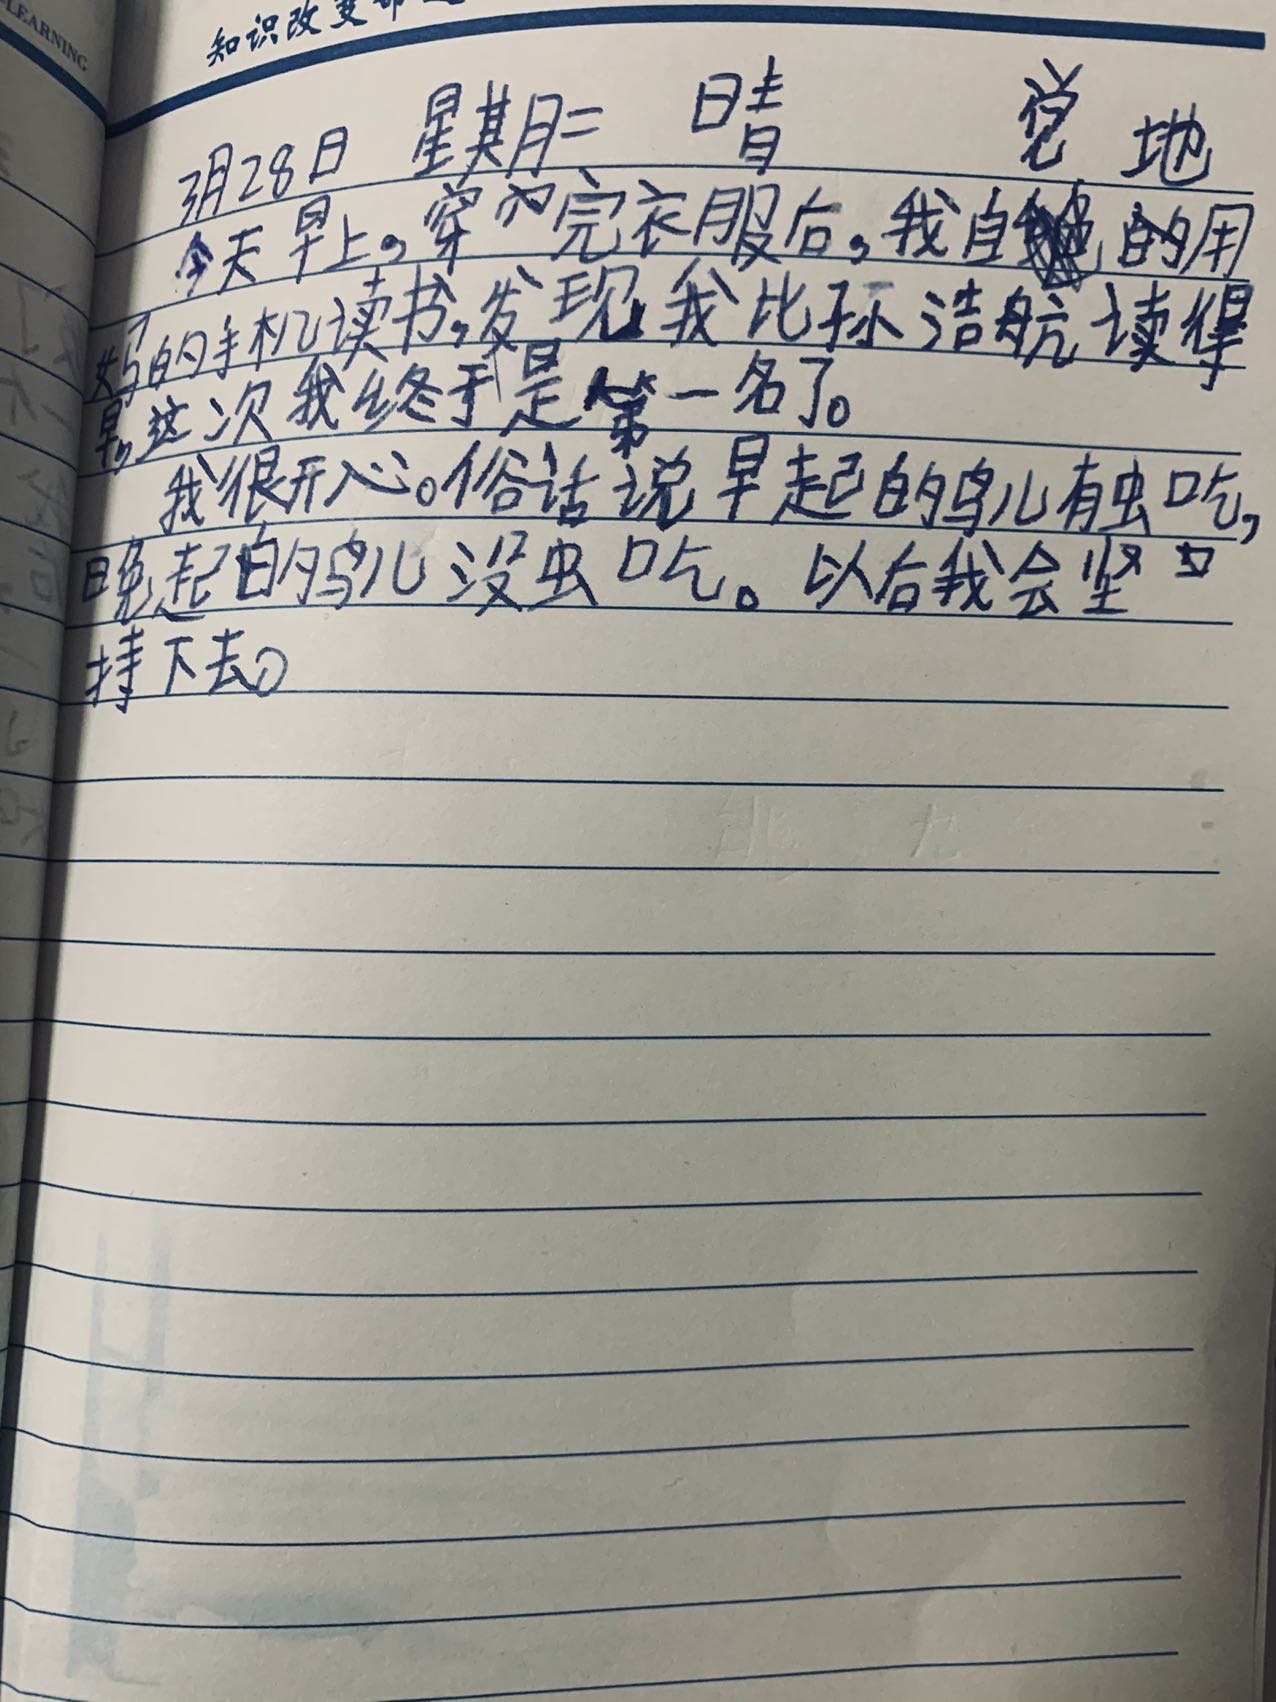 LEARNING
知识改变命运
3月28日 星期二 晴 觉 地
今天早上,穿完衣服后,我自的用
妈的手机读书,发现我比孙浩航读得
早,这次我终于是第一名了。
我很开心。俗话说早起的鸟儿有虫吃,
晚起的鸟儿没虫吃。以后我会坚
持下去。